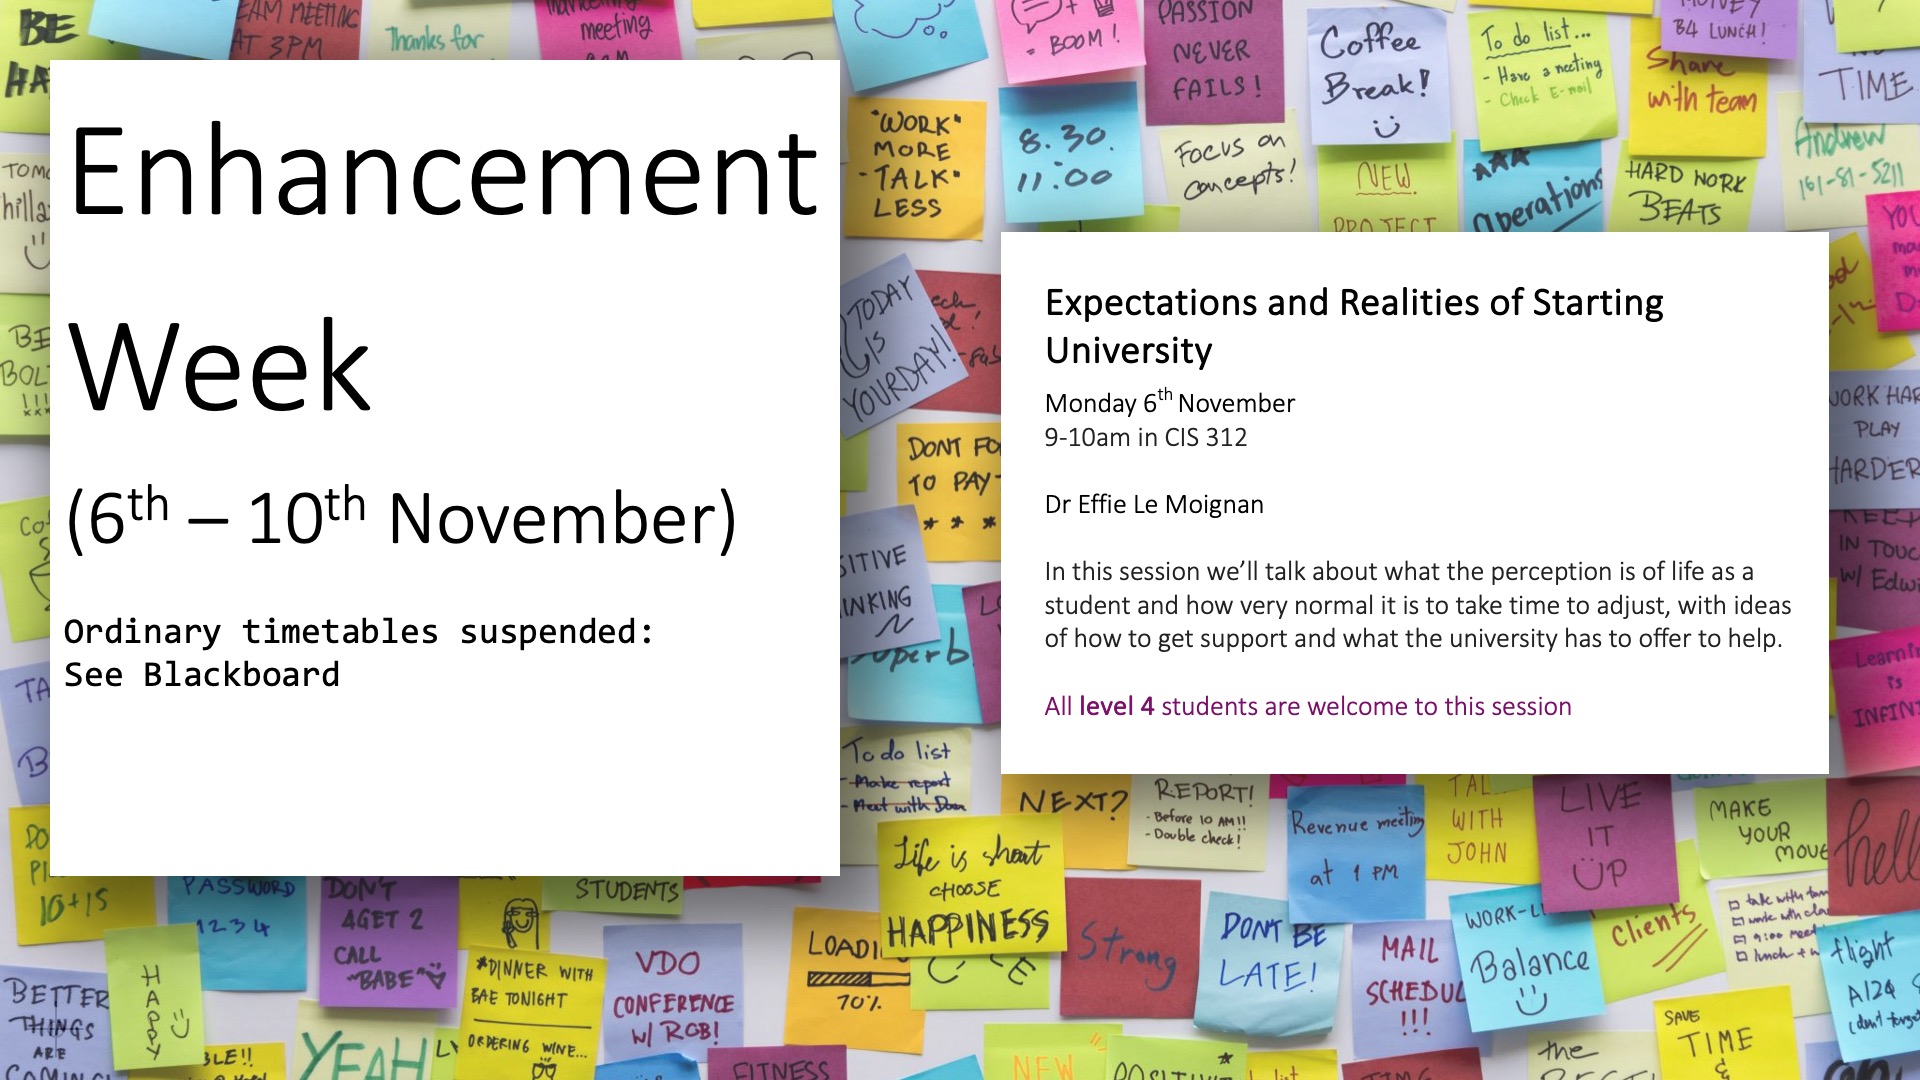 Enhancement
Week
(6th – 10th November)
Ordinary timetables suspended:
See Blackboard
Expectations and Realities of Starting
University
Monday 6th November
9-10am in CIS 312
Dr Effie Le Moignan
In this session we’ll talk about what the perception is of life as a
student and how very normal it is to take time to adjust, with ideas
of how to get support and what the university has to offer to help.
All level 4 students are welcome to this session
BE
AM MEETING
AT 3PM
Thanks for
meeting
= BOOM!
PASSION
NEVER
FAILS!
Coffee
Break!
To do list...
- Have a meeting
- Check E-mail
B4 LUNCH!
Share
with team
TIME
"WORK"
MORE
-TALK"
LESS
8.30
11:00
Focus on
concepts!
NEW
PROJECT
Operations
HARD WORK
BEATS
Andrew
161-81-5211
TODAY
IS
YOUR DAY!
DONT FO
TO PAY
* * *
PLAY
HARDER
IN TOUC
W/ Edw
is
To do list
- Make report
- Meet with Dan
NEXT?
REPORT!
- Before 10 AM!!
- Double check!
Revenue meeting
at 1 PM
WITH
JOHN
LIVE
IT
UP
MAKE
YOUR
MOVE
hell
Life is short
CHOOSE
HAPPINESS
10+15
PASSWORD
1234
DON'T
4GET 2
CALL
"BABE"
STUDENTS
LOADI
70%
Strong
DONT BE
LATE!
MAIL
SCHEDUL
!!!
WORK-LI
Balance
Clients
flight
A124
BETTER
THINGS
ARE
HAPPY
YEAH
*DINNER WITH
BAE TONIGHT
ORDERING WINE...
VDO
CONFERENCE
W/ ROB!
FITNESS
NEW
SAVE
TIME
&
the